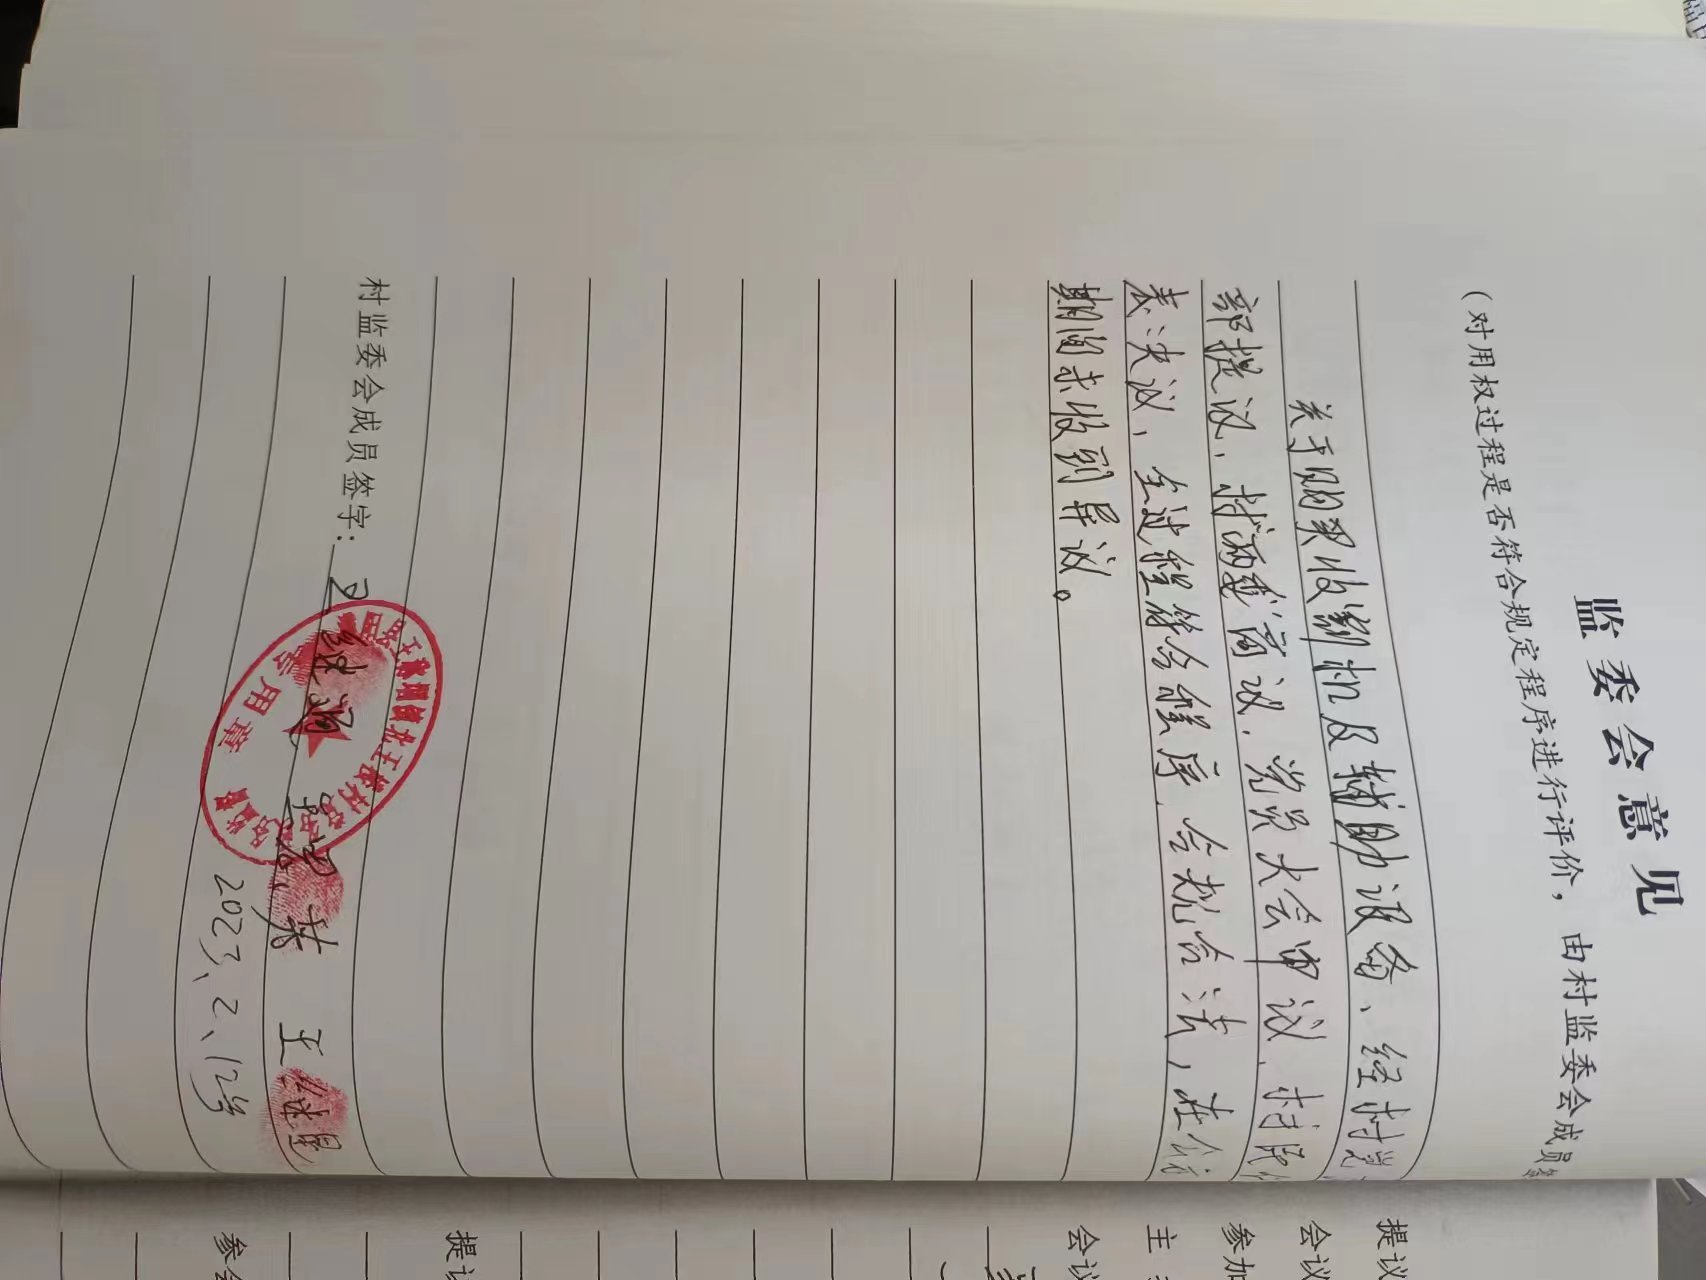 监委会意见
（对用权过程是否符合规定程序进行评价，由村监委会成员签
关于购买收割机及辅助设备、经村党
部提议，村“两委”商议，党员大会审议，村民代
表决议，全过程符合程序，合规合法，在公示
期间未收到异议。
村监委会成员签字：王继通 王 芳 王继星
2023、2、12号
镇北王楼村务
专用章
提议
会议
参加
主
会议
提议
参会